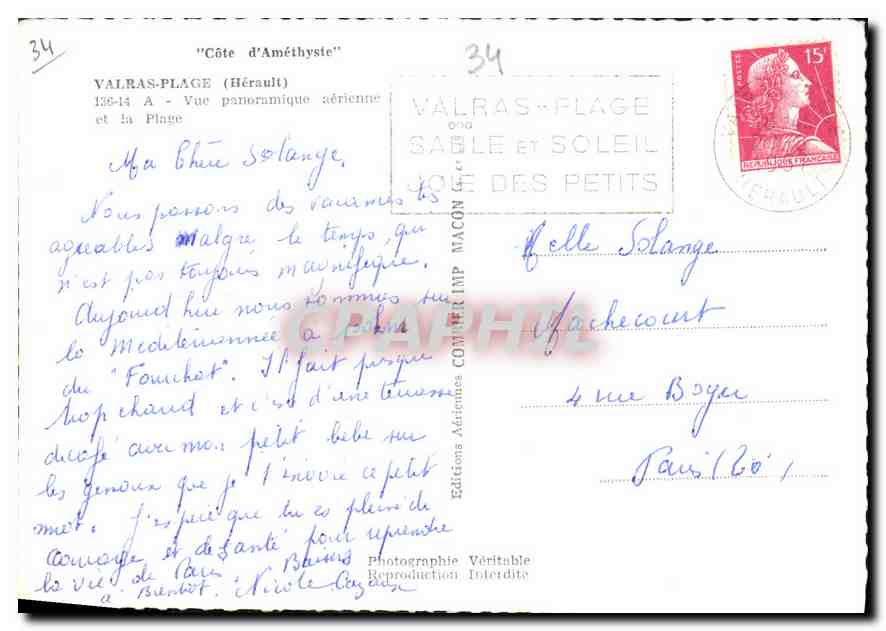 34
"Côte d'Améthyste"
VALRAS-PLAGE (Hérault)
136-14 A - Vue panoramique aérienne
et la Plage
34
VALRAS-PLAGE
SABLE ET SOLEIL
JOIE DES PETITS
POSTES
15F
REPUBLIQUE FRANÇAISE
HERAULT
Ma Chère Solange,
Nous passons des vacances très
agréables malgré le temps, qui
n'est pas toujours magnifique.
Aujourd'hui nous sommes sur
la Méditerrannée à
du "Fouchot". Il fait presque
trop chaud et c'est d'une terrasse
de café avec mon petit bébé sur
les genoux que je t'envoie ce petit
mot. J'espère que tu es pleine de
courage et de santé pour reprendre
la vie de Paris Baisers
à Bientôt. Nicole
Editions Aériennes COMBIER IMP MACON
CPAPHIL
Melle Solange
Machecourt
4 rue Boyer
Paris (20è)
Photographie Véritable
Reproduction Interdite